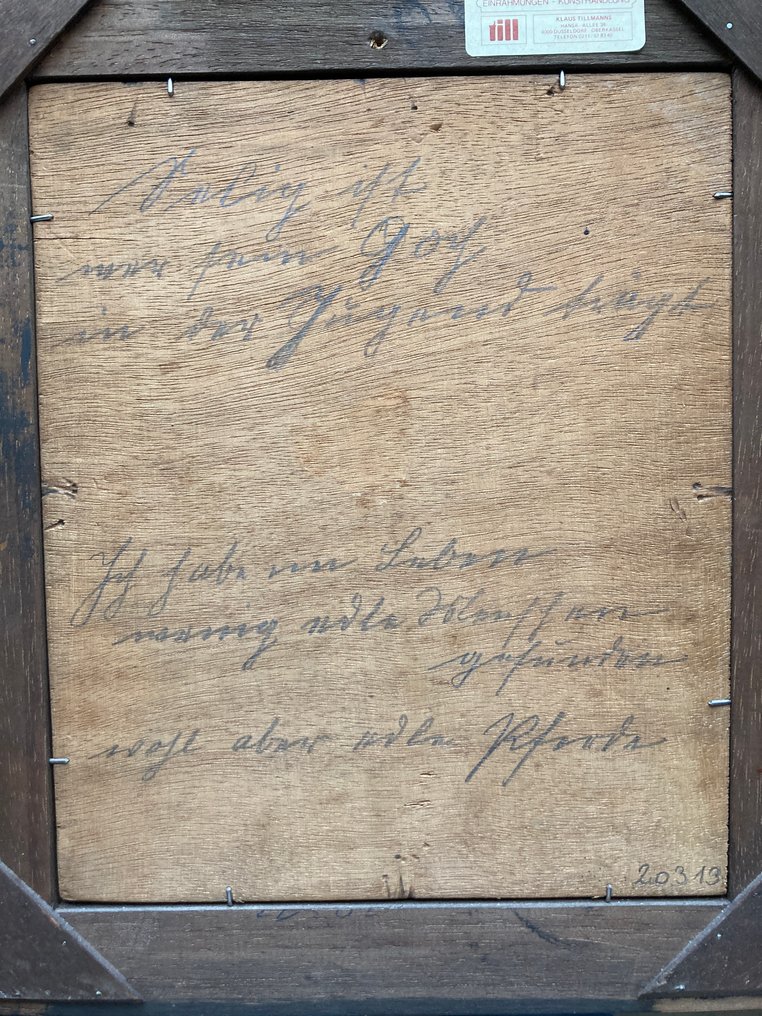 EINRAHMUNGEN · KUNSTHANDLUNG
till
KLAUS TILLMANNS
HANSA-ALLEE
4000 DÜSSELDORF-OBERKASSEL
TELEFON 0211/
Selig ist
wer sein Joch
in der Jugend trägt
Ich habe im Leben
wenig edle Menschen
gefunden
wohl aber edle Pferde
20313